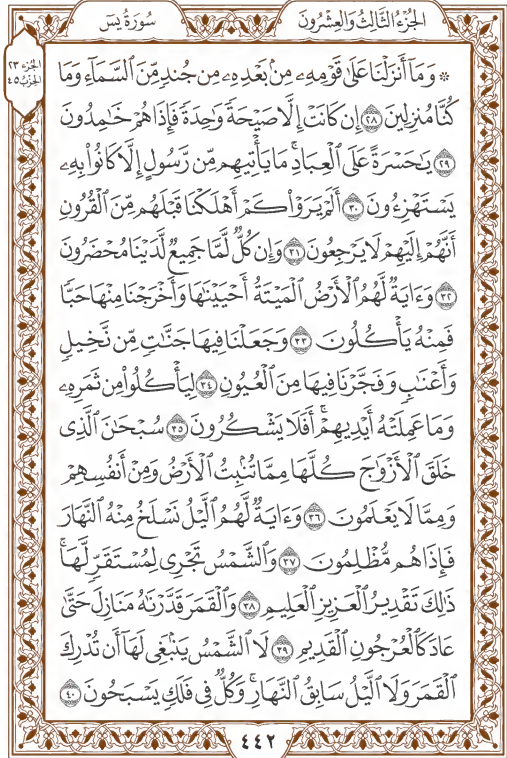 الجُزْءُ الثَّالِثُ وَالعِشْرُونَ
سُورَةُ يسٓ
الجُزْء ٢٣
الحِزْب ٤٥
۞ وَمَآ أَنزَلْنَا عَلَىٰ قَوْمِهِۦ مِنۢ بَعْدِهِۦ مِن جُندٍ مِّنَ ٱلسَّمَآءِ وَمَا
كُنَّا مُنزِلِينَ ٢٨ إِن كَانَتْ إِلَّا صَيْحَةً وَٰحِدَةً فَإِذَا هُمْ خَٰمِدُونَ
٢٩ يَٰحَسْرَةً عَلَى ٱلْعِبَادِ ۚ مَا يَأْتِيهِم مِّن رَّسُولٍ إِلَّا كَانُوا۟ بِهِۦ
يَسْتَهْزِءُونَ ٣٠ أَلَمْ يَرَوْا۟ كَمْ أَهْلَكْنَا قَبْلَهُم مِّنَ ٱلْقُرُونِ
أَنَّهُمْ إِلَيْهِمْ لَا يَرْجِعُونَ ٣١ وَإِن كُلٌّ لَّمَّا جَمِيعٌ لَّدَيْنَا مُحْضَرُونَ
٣٢ وَءَايَةٌ لَّهُمُ ٱلْأَرْضُ ٱلْمَيْتَةُ أَحْيَيْنَٰهَا وَأَخْرَجْنَا مِنْهَا حَبًّا
فَمِنْهُ يَأْكُلُونَ ٣٣ وَجَعَلْنَا فِيهَا جَنَّٰتٍ مِّن نَّخِيلٍ
وَأَعْنَٰبٍ وَفَجَّرْنَا فِيهَا مِنَ ٱلْعُيُونِ ٣٤ لِيَأْكُلُوا۟ مِن ثَمَرِهِۦ
وَمَا عَمِلَتْهُ أَيْدِيهِمْ ۖ أَفَلَا يَشْكُرُونَ ٣٥ سُبْحَٰنَ ٱلَّذِى
خَلَقَ ٱلْأَزْوَٰجَ كُلَّهَا مِمَّا تُنۢبِتُ ٱلْأَرْضُ وَمِنْ أَنفُسِهِمْ
وَمِمَّا لَا يَعْلَمُونَ ٣٦ وَءَايَةٌ لَّهُمُ ٱلَّيْلُ نَسْلَخُ مِنْهُ ٱلنَّهَارَ
فَإِذَا هُم مُّظْلِمُونَ ٣٧ وَٱلشَّمْسُ تَجْرِى لِمُسْتَقَرٍّ لَّهَا ۚ
ذَٰلِكَ تَقْدِيرُ ٱلْعَزِيزِ ٱلْعَلِيمِ ٣٨ وَٱلْقَمَرَ قَدَّرْنَٰهُ مَنَازِلَ حَتَّىٰ
عَادَ كَٱلْعُرْجُونِ ٱلْقَدِيمِ ٣٩ لَا ٱلشَّمْسُ يَنۢبَغِى لَهَآ أَن تُدْرِكَ
ٱلْقَمَرَ وَلَا ٱلَّيْلُ سَابِقُ ٱلنَّهَارِ ۚ وَكُلٌّ فِى فَلَكٍ يَسْبَحُونَ ٤٠
٤٤٢